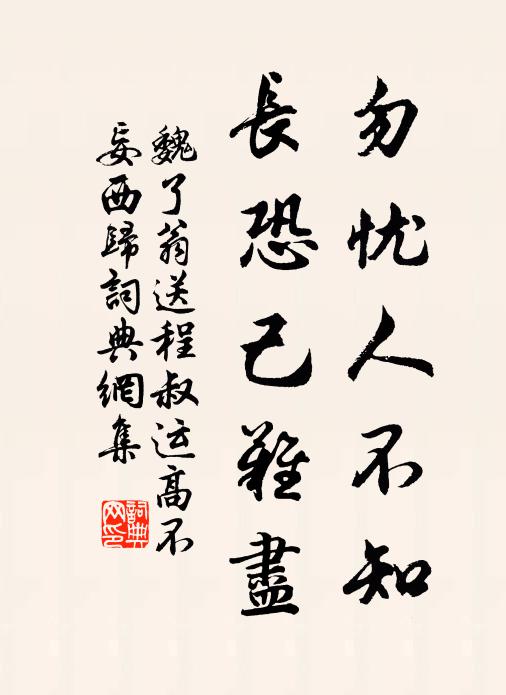 勿忧人不知
長恐己難盡
魏了翁送程叔运高不
妄西歸詞典網集
詞典网印